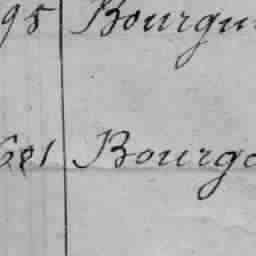 95 Bourgui
601 Bourgo